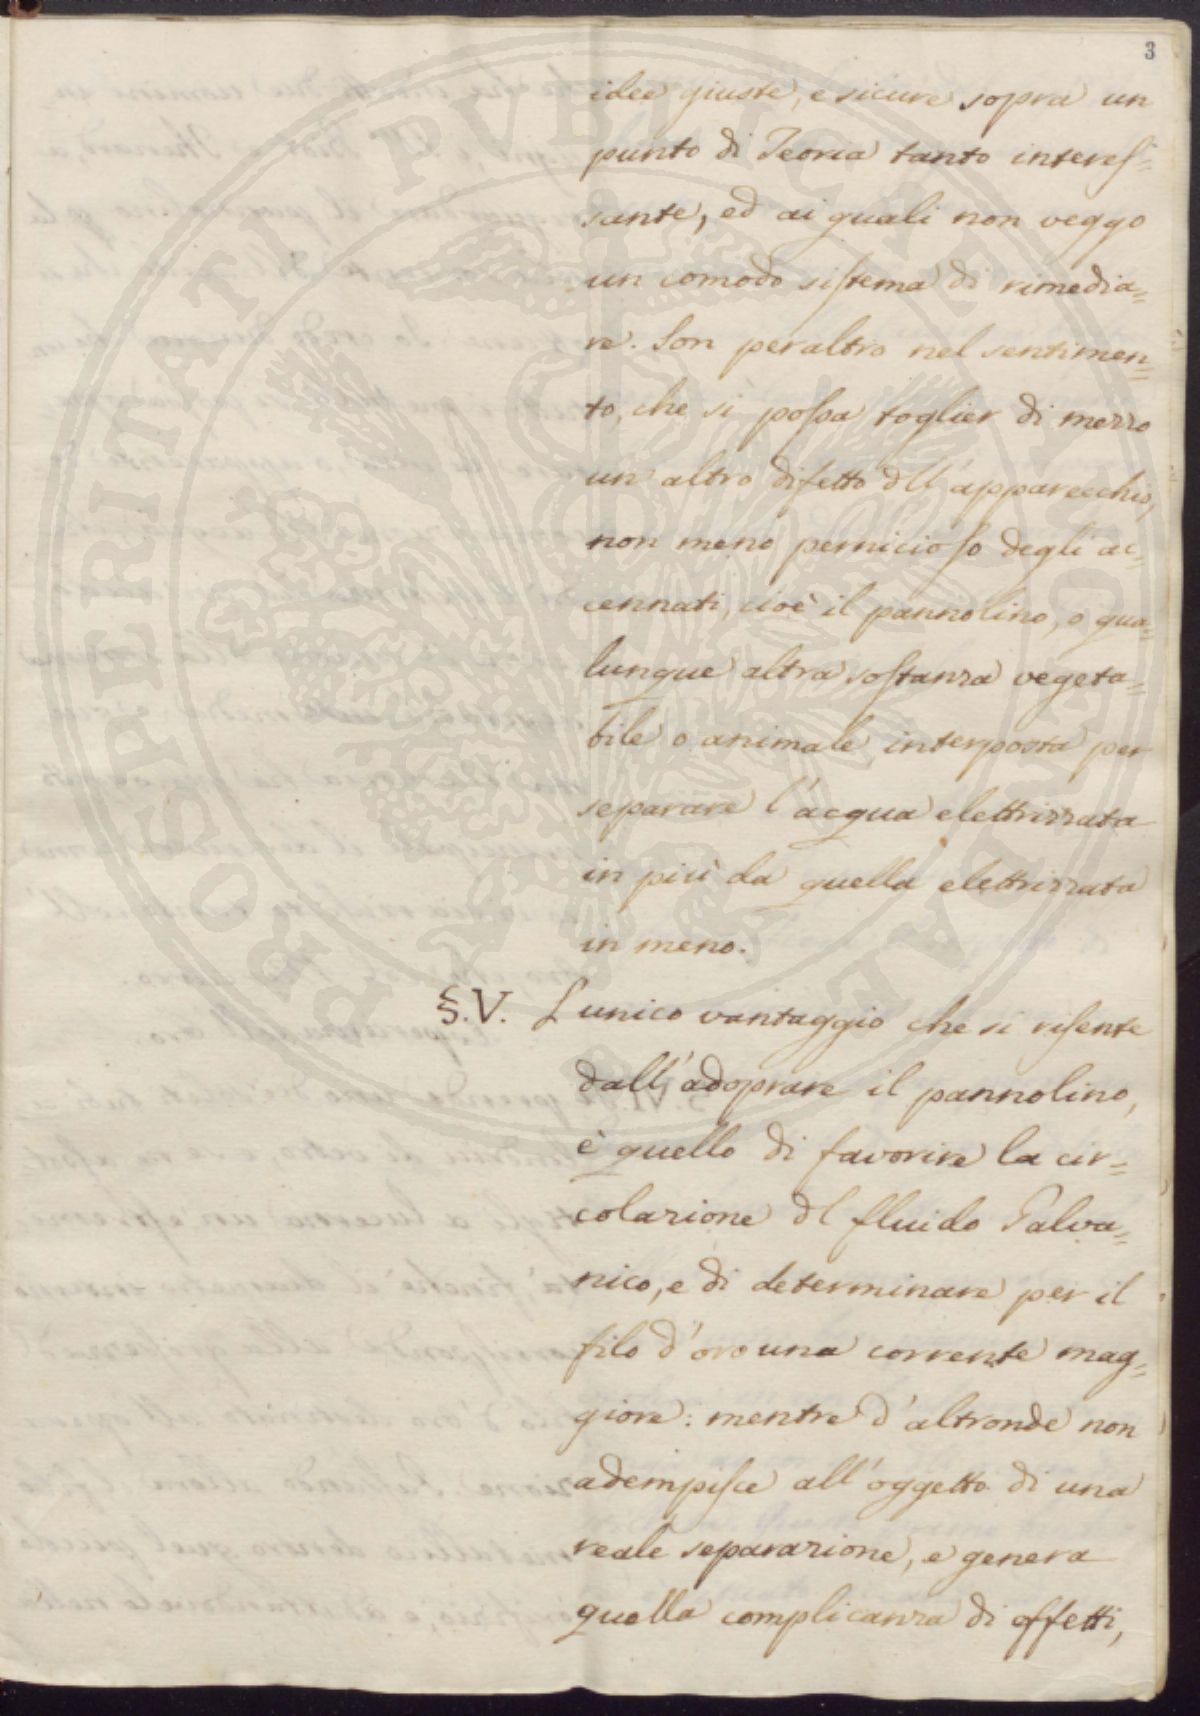 3
idee giuste, e sicure sopra un
punto di Teoria tanto interes=
sante, ed ai quali non veggo
un comodo sistema di rimedia=
re. Son peraltro nel sentimen=
to, che si possa toglier di mezzo
un altro difetto dll'apparecchio,
non meno pernicioso degli ac=
cennati, cioè il pannolino, o qua=
lunque altra sostanza vegeta=
bile o animale interposta per
separare l'acqua elettrizzata
in più da quella elettrizzata
in meno.
§.V. L'unico vantaggio che si risente
dall'adoprare il pannolino,
è quello di favorire la cir=
colazione dl fluido Galva=
nico, e di determinare per il
filo d'oro una corrente mag=
giore: mentre d'altronde non
adempisce all'oggetto di una
reale separazione, e genera
quella complicanza di effetti,
PROSPERITATI PVBLICAE AVGENDAE